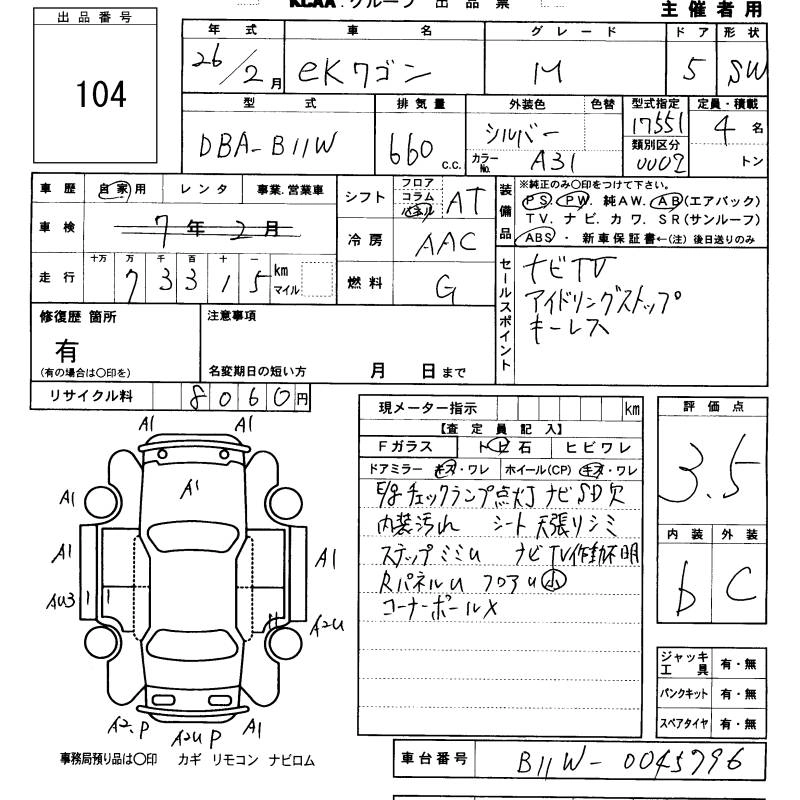 KCAA グループ 出品票
主催者用
出品番号
104
年式 車名 グレード ドア 形状
26/2月 eKワゴン M 5 SW
型式 排気量 外装色 色替 型式指定 定員・積載
DBA-B11W 660 c.c. シルバー 17551 4名
カラーNo. A31 類別区分 0002 トン
車歴 自家用 レンタ 事業.営業車
シフト フロア コラム パネル AT
車検 7年2月
冷房 AAC
走行 十万 万 千 百 十 一
73315 km マイル
燃料 G
装備品 ※純正のみ〇印をつけて下さい。
PS. PW. 純AW. AB(エアバック)
TV. ナビ. カワ. SR(サンルーフ)
ABS・新車保証書←(注)後日送りのみ
セールスポイント
ナビTV
アイドリングストップ
キーレス
修復歴 箇所
有
(有の場合は〇印を)
注意事項
名変期日の短い方 月 日まで
リサイクル料 8060円
現メーター指示 km
【査定員記入】
Fガラス トビ石 ヒビワレ
ドアミラー キズ・ワレ ホイール(CP) キズ・ワレ
E/g チェックランプ点灯 ナビSD欠
内装汚れ シート 天張りシミ
ステップミミU ナビTV作動不明
RパネルU フロアU小
コーナーポールX
評価点
3.5
内装 外装
b C
ジャッキ工具 有・無
パンクキット 有・無
スペアタイヤ 有・無
A1 A1
A1
A1
A1 A1
AU3 A2U
A2.P A2UP A1
事務局預り品は〇印 カギ リモコン ナビロム
車台番号 B11W-0045796